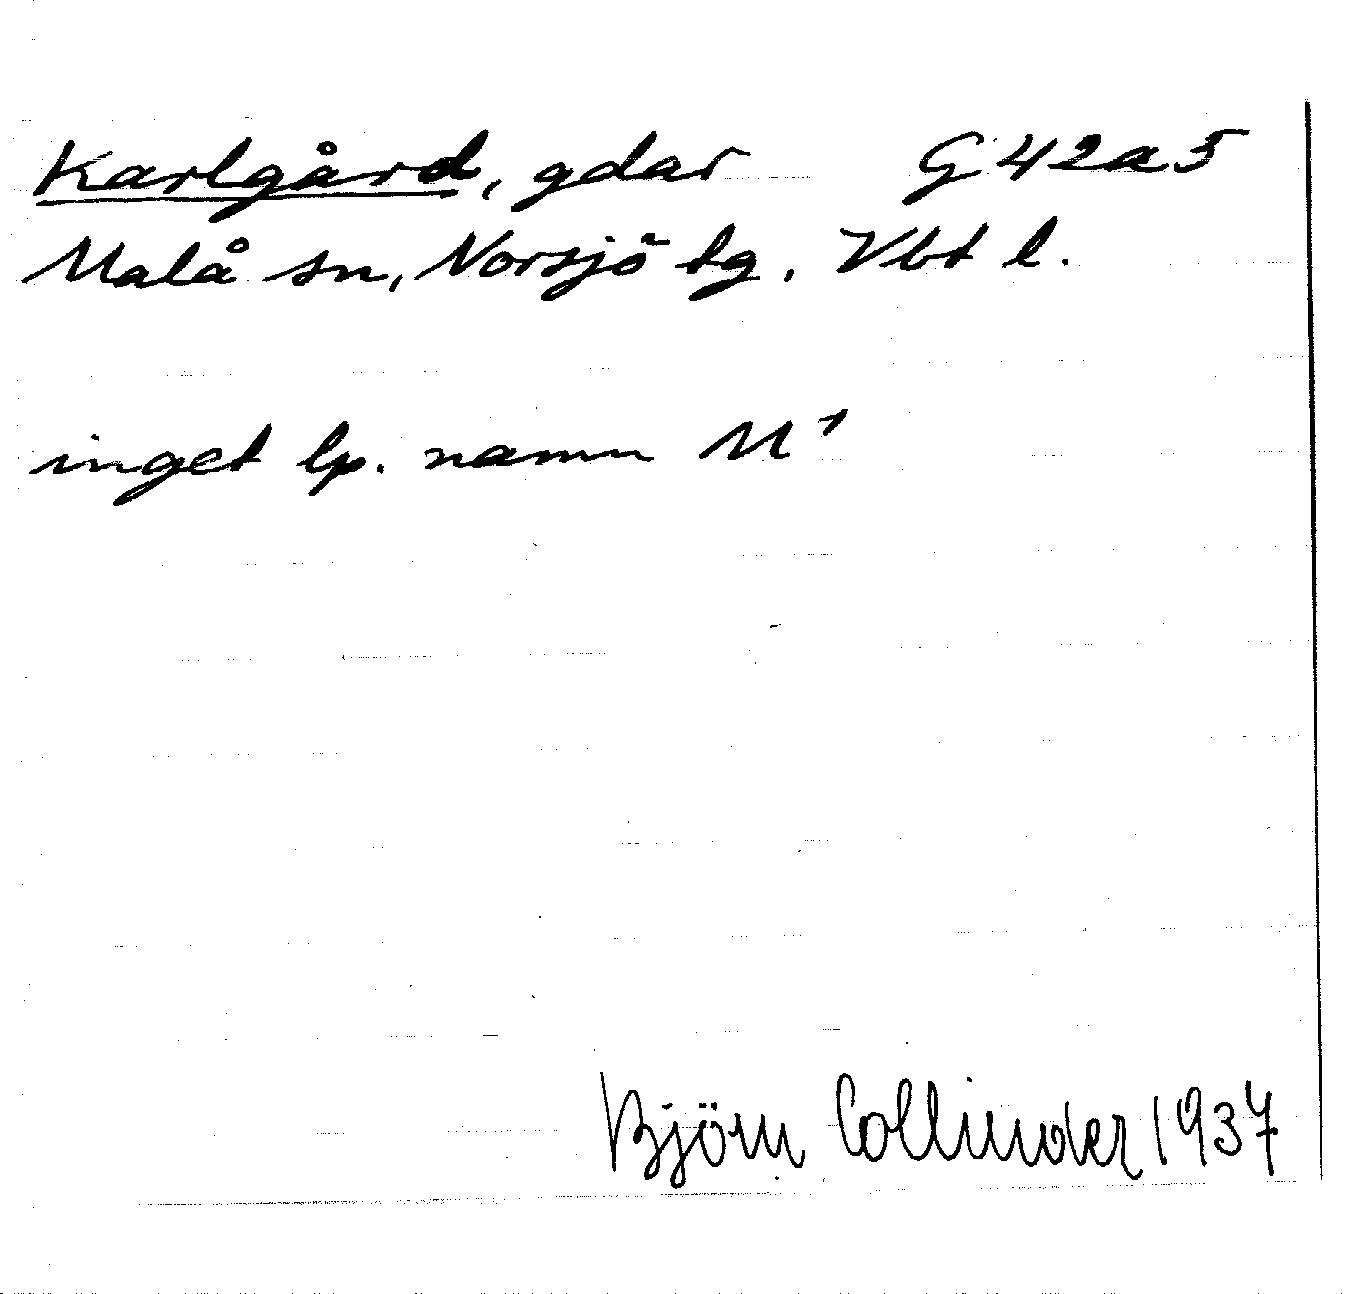 Karlgård, gdar G 42a5
Malå sn, Norsjö tg. Vbt l.
inget lp. namn M¹
Björn Collinder 1937